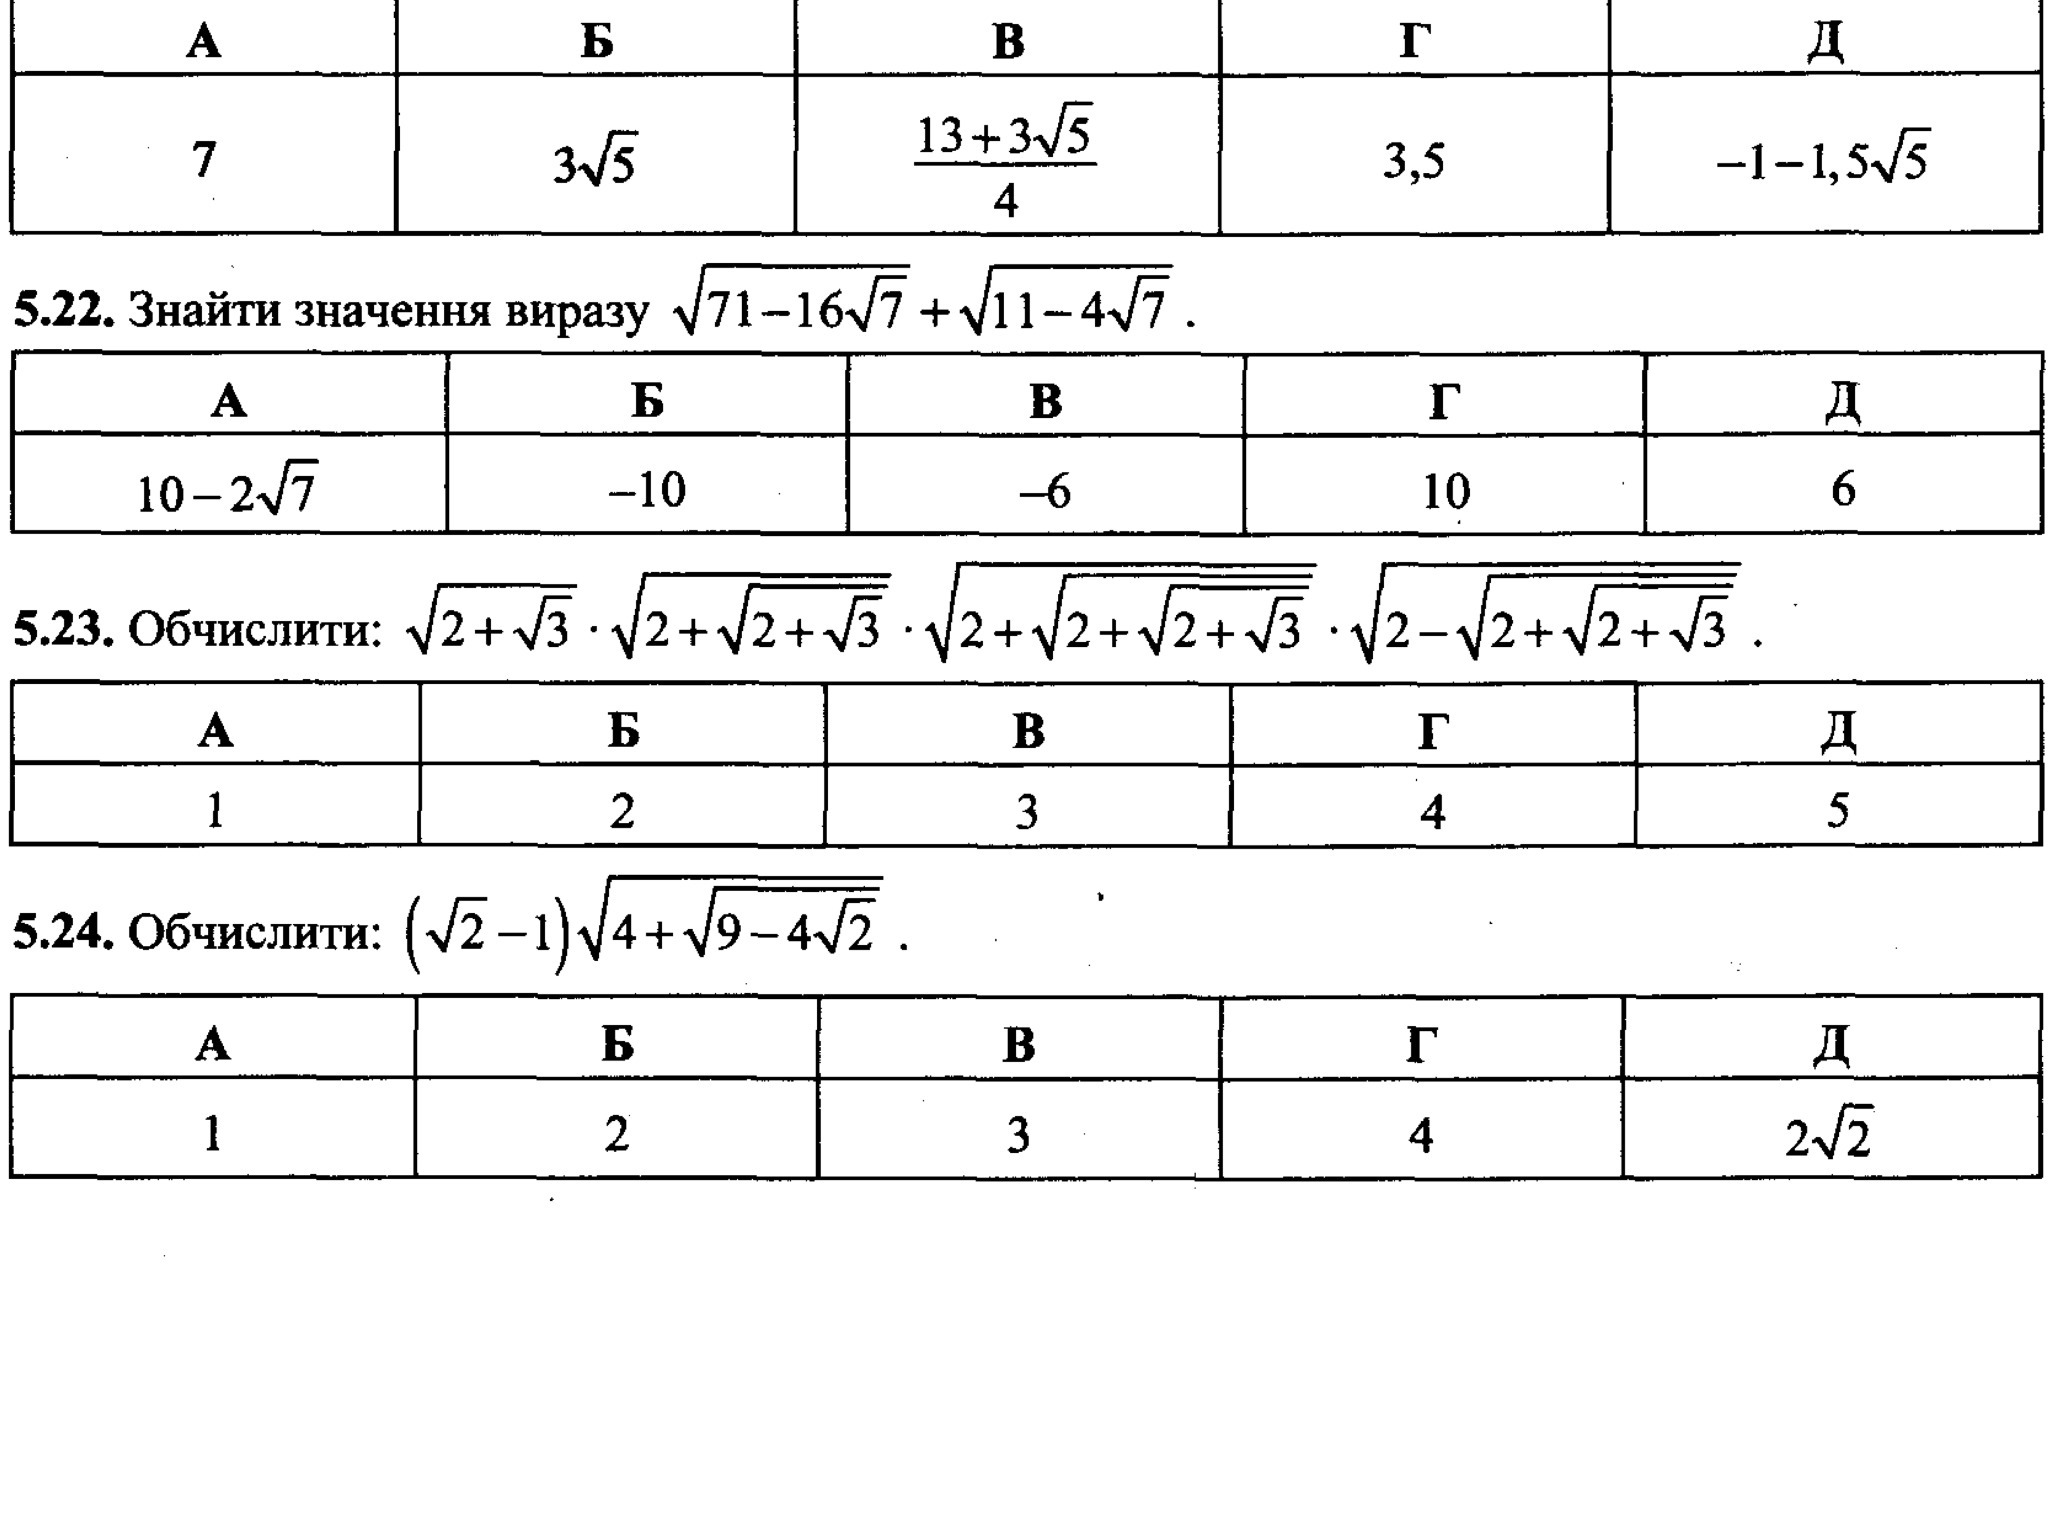 А Б В Г Д
7 3√5 (13+3√5)/4 3,5 −1−1,5√5
5.22. Знайти значення виразу √(71−16√7) + √(11−4√7) .
А Б В Г Д
10−2√7 −10 −6 10 6
5.23. Обчислити: √(2+√3) · √(2+√(2+√3)) · √(2+√(2+√(2+√3))) · √(2−√(2+√(2+√3))) .
А Б В Г Д
1 2 3 4 5
5.24. Обчислити: (√2−1)√(4+√(9−4√2)) .
А Б В Г Д
1 2 3 4 2√2